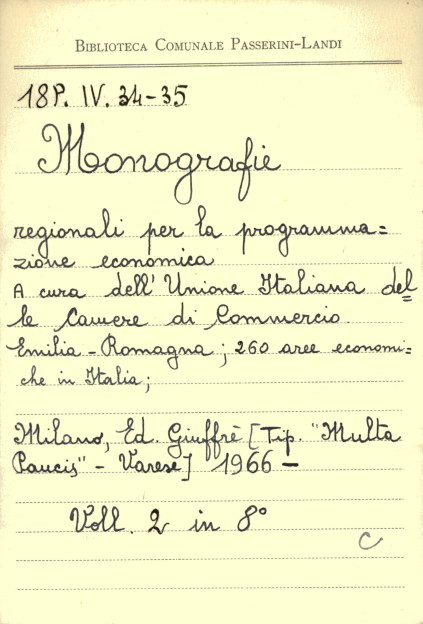 BIBLIOTECA COMUNALE PASSERINI-LANDI
18P. IV. 34-35
Monografie
regionali per la programma=
zione economica
A cura dell'Unione Italiana del=
le Camere di Commercio.
Emilia-Romagna; 260 aree economi=
che in Italia;
Milano, Ed. Giuffrè [Tip. "Multa
Paucis" - Varese] 1966 -
Voll. 2 in 8°
C